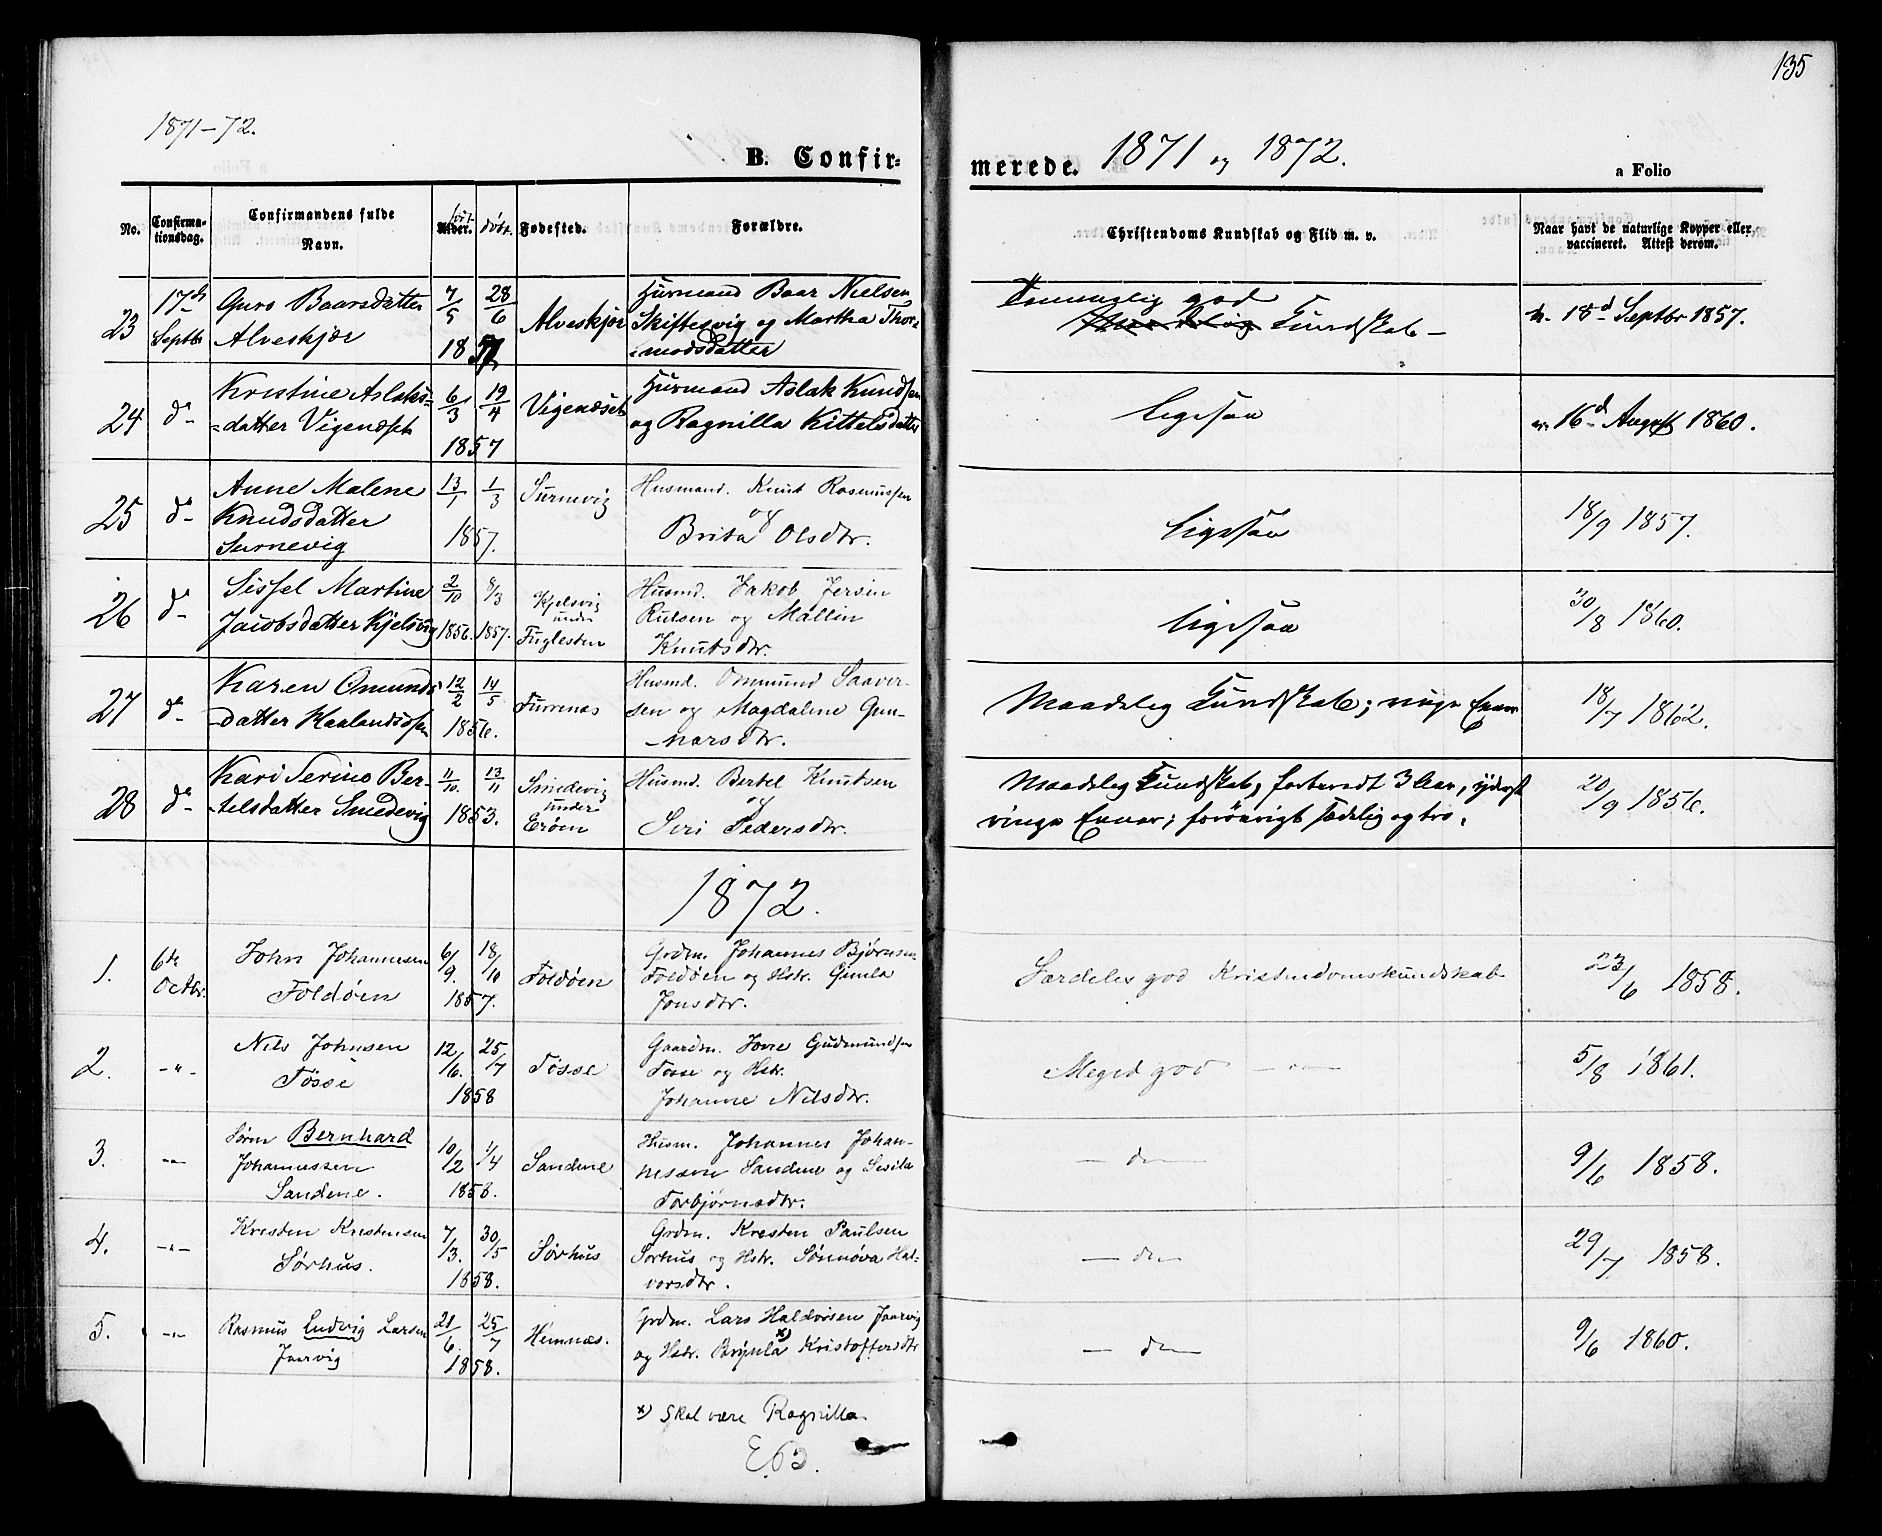 135
1871-72.
B. Confir=
merede. 1871 og 1872.
a Folio
No.
Confirma-
tionsdag.
Confirmandens fulde
Navn.
Alder.
døbt.
Fødested.
Forældre.
Christendoms Kundskab og Flid m. v.
Naar havt de naturlige Kopper eller
vaccineret. Attest derom.
23
17de
Septbr
Guro Baarsdatter
Alveskjær
7/5
28/6
1857
Alveskjær
Huusmand Baar Nielsen
Skiftesvig og Martha Thor=
=modsdatter
Temmelig god
Kundskab-
v. 18d Septbr 1857.
24
do-
Kristine Aslaks=
=datter Vigenæset
6/3
19/4
1857
Vigenæset
Huusmand Aslak Knudsen
og Ragnilla Kittelsdatter
ligesaa
v. 16d August 1860.
25
do-
Anne Malene
Knudsdatter
Surnevig
13/1
1/3
1857.
Surnevig
Husmand. Knut Rasmussen
og
Brita Olsdtr.
ligesaa
18/9 1857.
26
do-
Sissel Martine
Jacobsdatter Kjelsvig
2/10
8/3
1856.
1857.
Kjelsvig
under
Fuglesten
Husmd. Jakob Jersin
Rulsen og Mallin
Knutsdtr.
ligesaa
30/8 1860.
27
do-
Karen Omunds
-datter
12/2
14/5
1856.
Furrenæs
Husmd. Ommund Saaver-
sen og Magdalene Gun-
narsdtr.
Maadelig Kundskab; ringe Evner
18/7 1862.
28
do-
Kari Serine Ber-
-telsdatter Smedevig
11/10.
13/11
1853.
Smedevig
under
Erøen
Husmd. Bertel Knutsen
og
Siri Pedersdtr.
Maadelig Kundskab, forberedt 3 Aar, yderst
ringe Evner; forøvrigt sædelig og tro.
20/9 1856.
1872.
1.
6te
Octbr.
John Johannesen
Foldøen
6/9.
18/10
1857.
Foldøen
Grdm. Johannes Bjørnsen
Foldøen og Hstr. Gunla
Jonsdtr.
Særdeles god Kristendomskundskab
23/6 1858.
2.
-"-
Nils Johnsen
Tøsse
12/6.
25/7
1858
Tøsse
Gaardm. Jone Gudmundsen
Tøsse og Hstr.
Johanne Nilsdtr.
Meget god -"-
5/8 1861.
3.
-"-
Søren Bernhard
Johannessen
Sandene.
10/2
4/4
1858.
Sandene
Husm. Johannes Johan-
nessen Sandene og Sesila
Torbjørnsdtr.
- do -
9/6 1858.
4.
-"-
Kresten Krestensen
Sørhus.
7/3.
30/5
1858.
Sørhus
Grdm. Kresten Paulsen
Sørhus og Hstr. Sønnøva Hal-
vorsdtr.
- do -
29/7 1858.
5.
-"-
Rasmus Ludvig Larsen
Jaarvig
21/6.
25/7
1858.
Hemnæs.
Grdm. Lars Haldorsen Jaarvig
og Hstr. x) Kristoffersdtr
- do -
9/6 1860.
x) Skal være Ragnilla.
E.63.